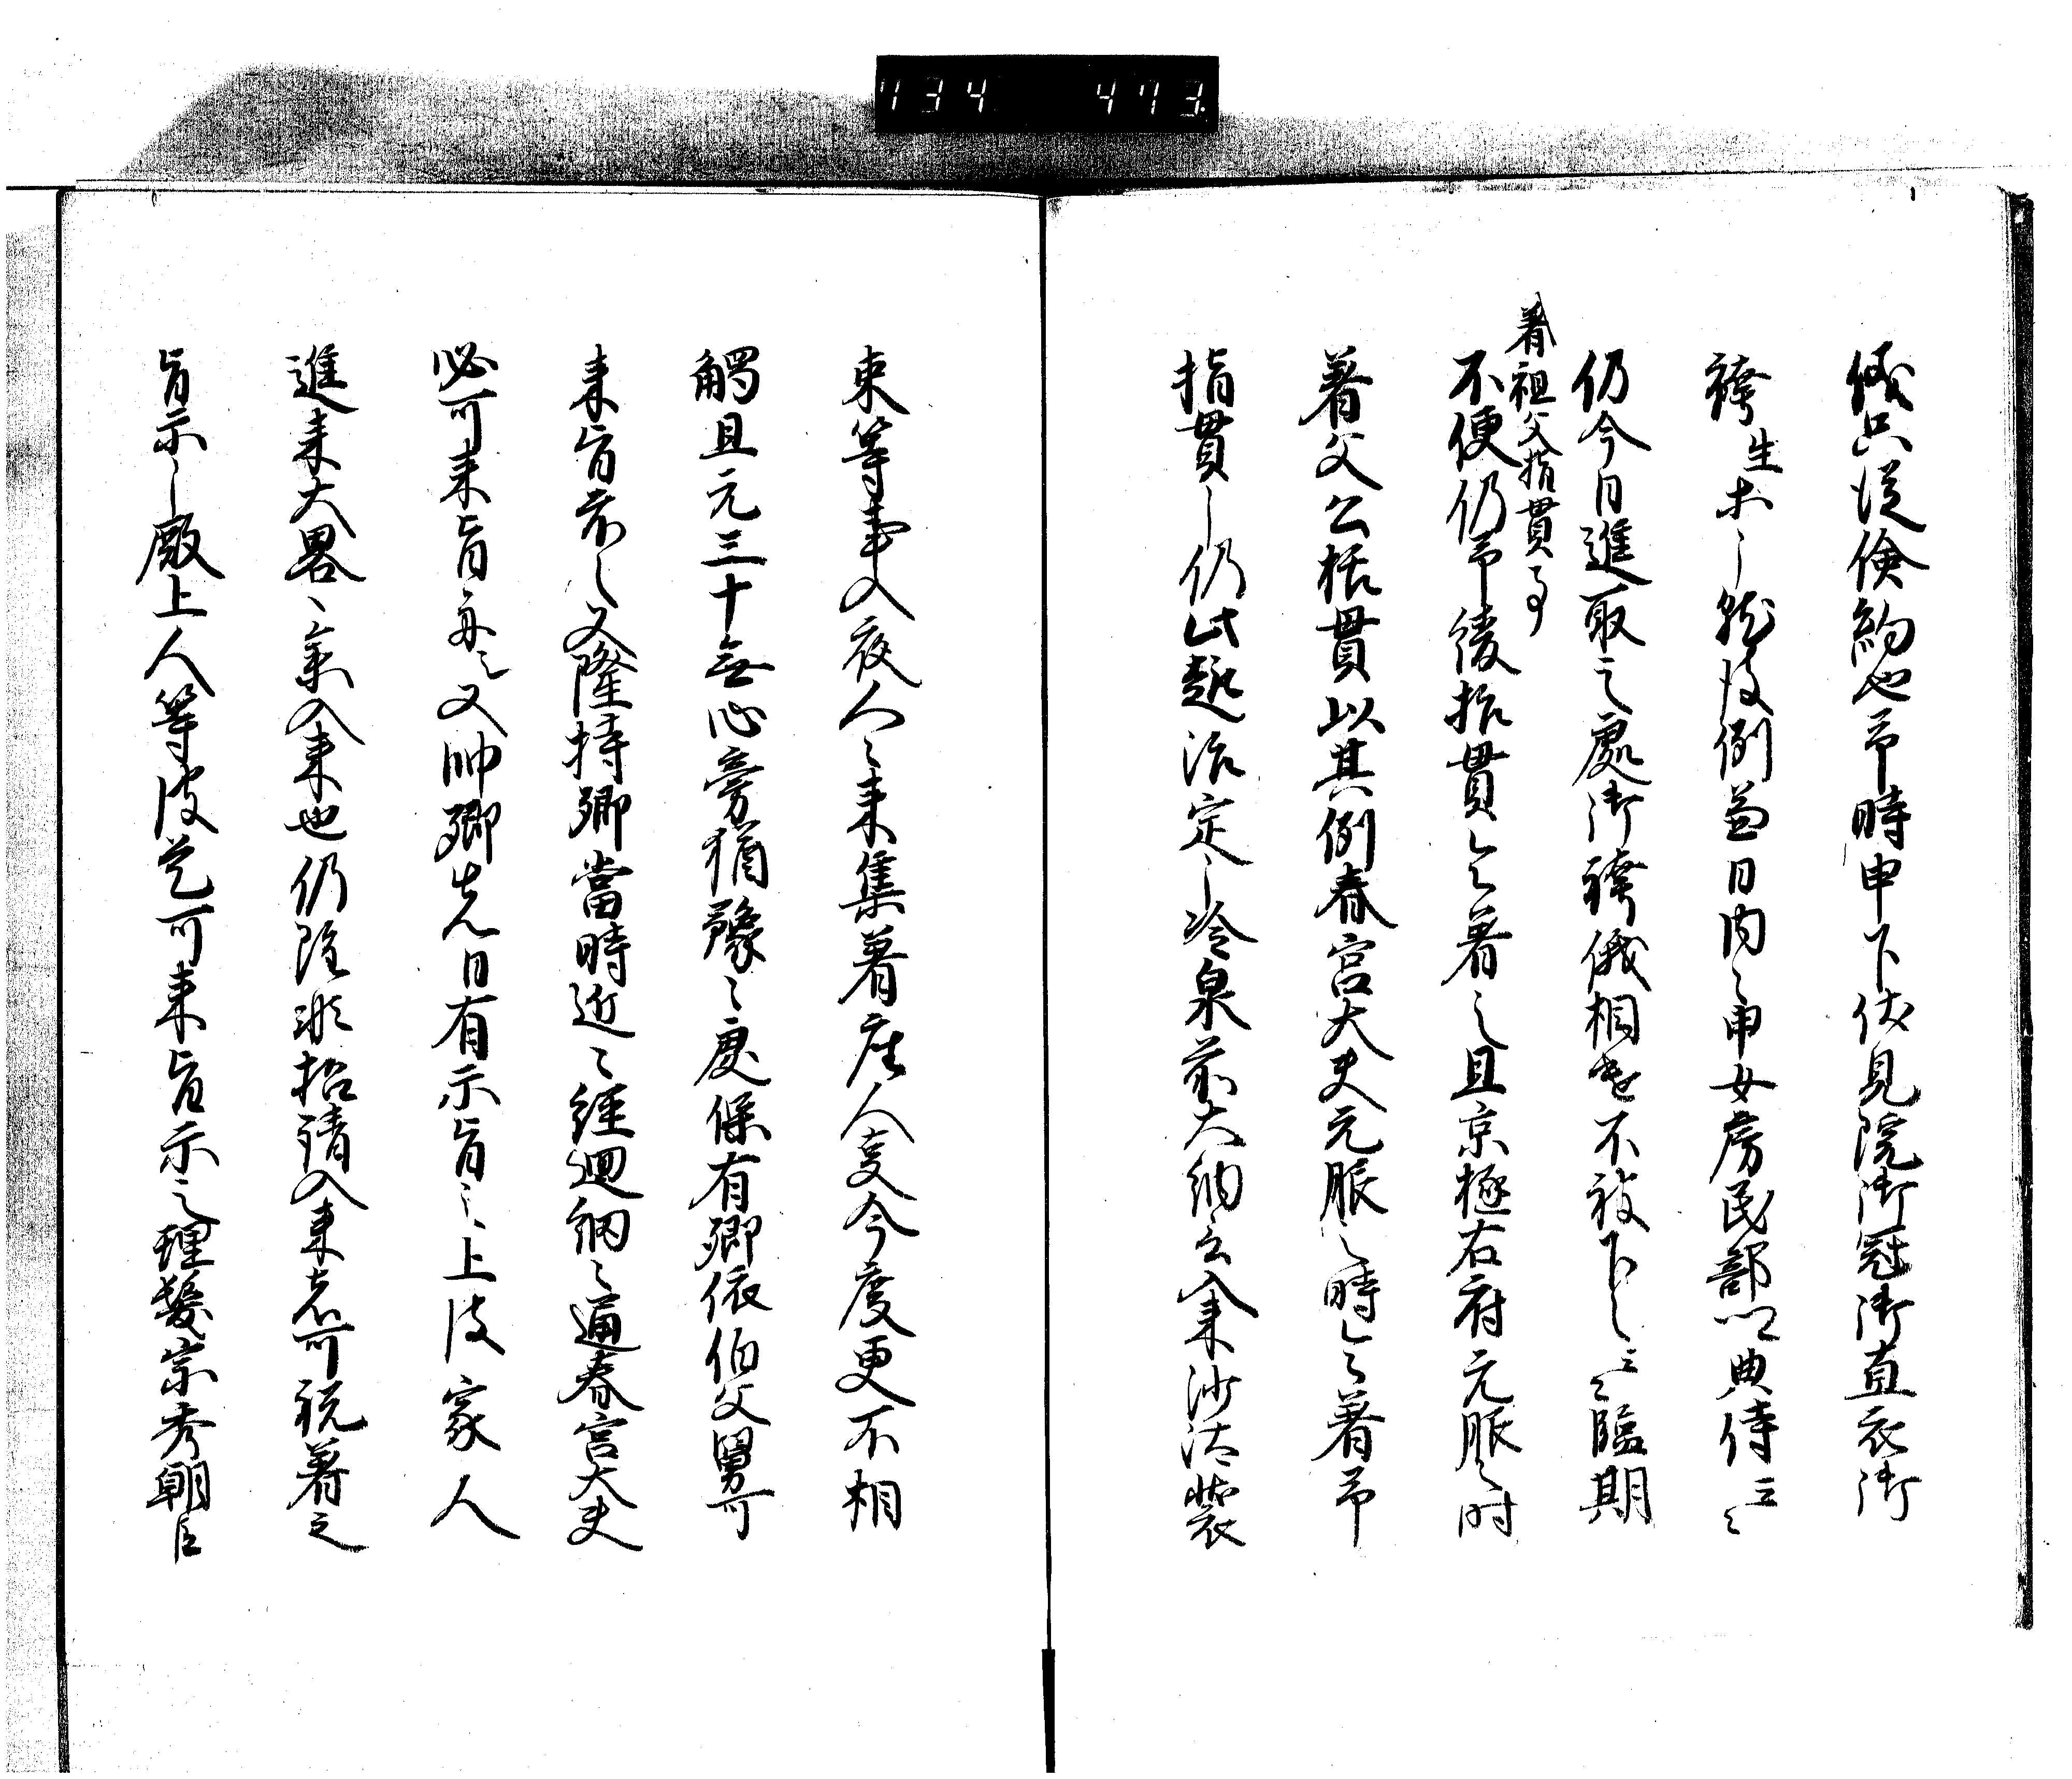 734 473
儀只従倹約也予時申下伏見院御冠御直衣御
袴生木之就彼例兼日内々申女房民部卿典侍云々
仍今日進取之處御袴俄相違不被下之云々臨期
着祖父指貫事
不便仍予綾指貫令着之且京極右府元服之時
着父公指貫以其例春宮大夫元服之時令着予
指貫之仍此趣治定之冷泉前大納言入来沙汰装
束等事入夜人々来集着座人更今度更不相
觸且元三十無心旁猶豫之處保有卿依伯父舅可
来旨示之又隆持卿當時近々経廻細々通春宮大夫
必可来旨示之又帥卿先日有示旨之上彼家人
進来大略々入来也仍雖非招請入来者可祝着之
旨示之殿上人等彼是可来旨示之理髪宗秀朝臣